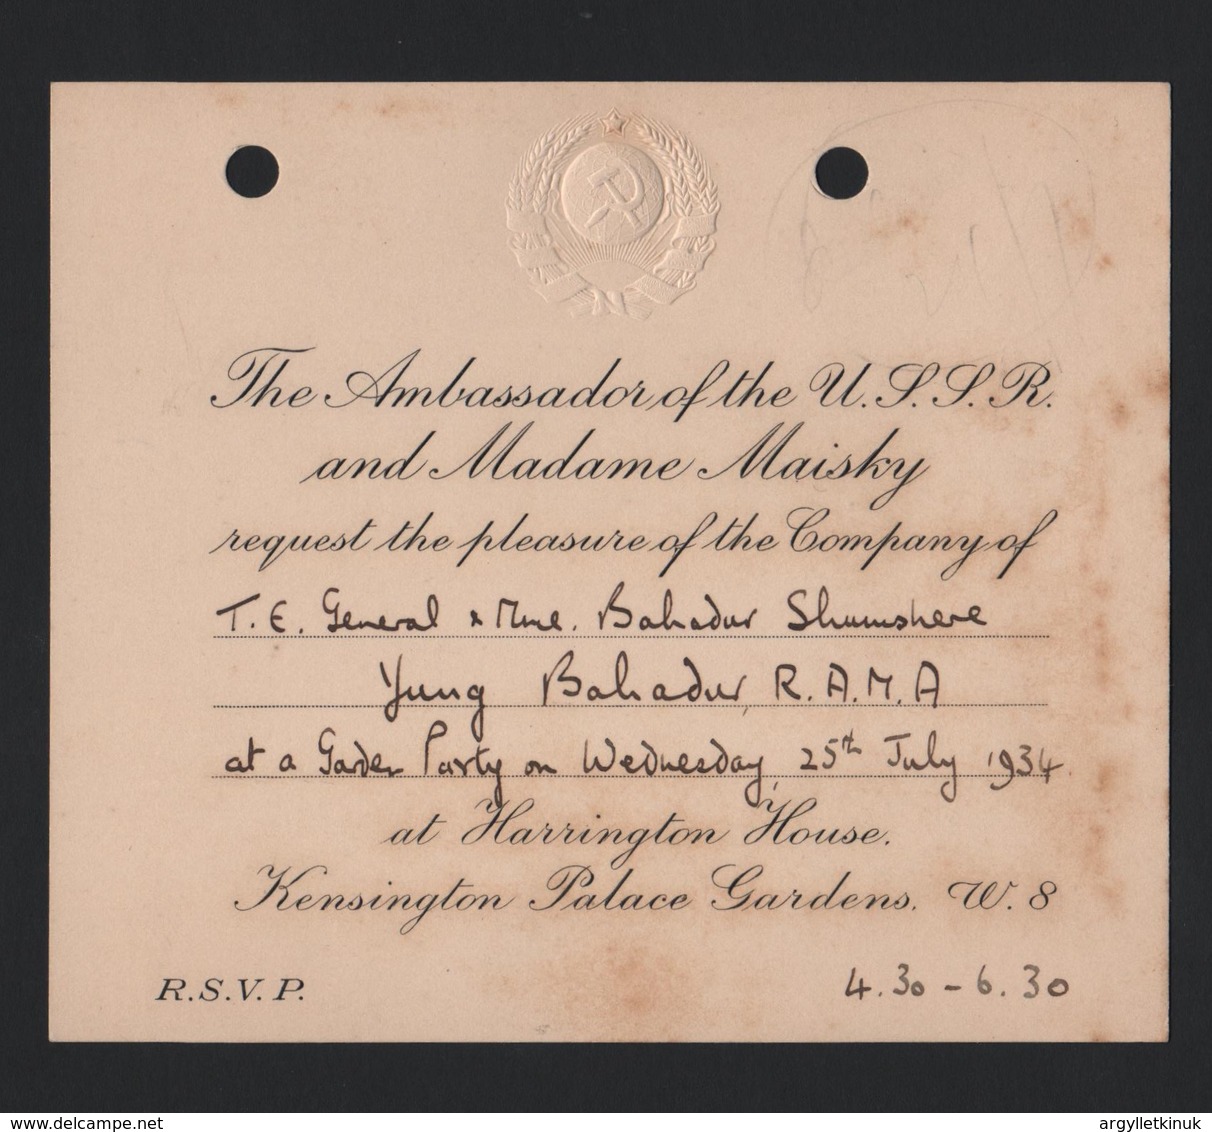 The Ambassador of the U.S.S.R.
and Madame Maisky
request the pleasure of the Company of
T. E. General & Mme. Bahadur Shumshere
Yung Bahadur, R.A.M.A
at a Garden Party on Wednesday, 25th July 1934
at Harrington House.
Kensington Palace Gardens. W. 8
R.S.V.P.
4.30 - 6.30
www.delcampe.net
argylletkinuk